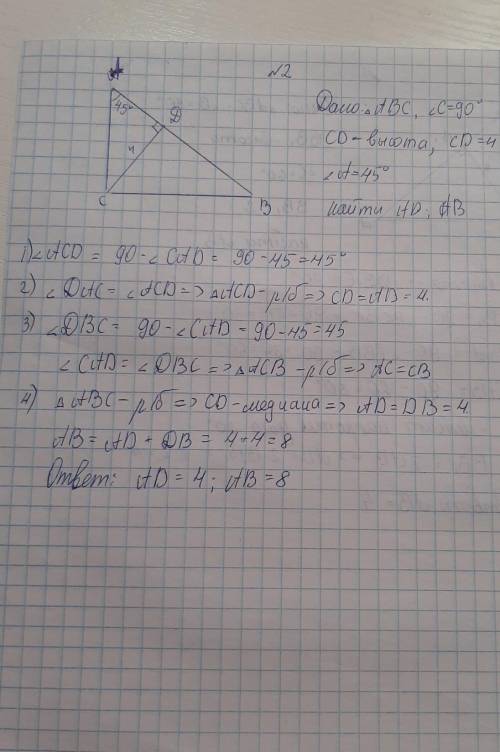 №2
A
45°
D
4
C
B
Дано: △ABC, ∠C=90°
CD – высота, CD=4
∠A=45°
Найти AD, AB
1) ∠ACD = 90-∠CAD = 90-45=45°
2) ∠DAC = ∠ACD => △ACD – р/б => CD=AD=4.
3) ∠DBC = 90-∠CAD = 90-45=45
∠CAD = ∠DBC => △ACB – р/б => AC=CB
4) △ABC – р/б => CD – медиана => AD=DB=4
AB = AD + DB = 4+4=8
Ответ: AD = 4; AB=8